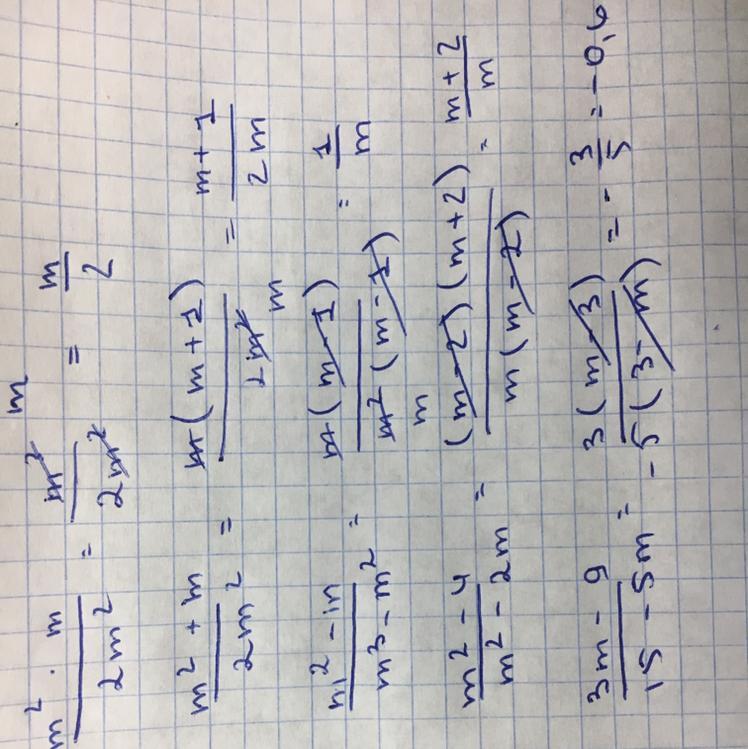 m² · m / 2m² = m³ / 2m² = m / 2
m² + m / 2m² = m(m + 1) / 2m² = m + 1 / 2m
m² - m / m³ - m² = m(m - 1) / m²(m - 1) = 1 / m
m² - 4 / m² - 2m = (m - 2)(m + 2) / m(m - 2) = m + 2 / m
3m - 9 / 15 - 5m = 3(m - 3) / -5(3 - m) = - 3 / 5 = -0,6